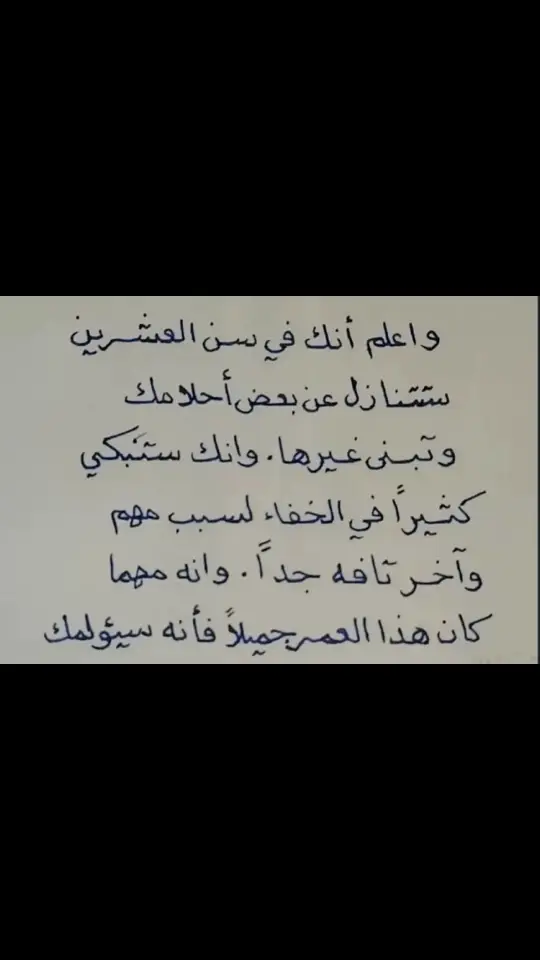 واعلم أنك في سن العشرين
ستتنازل عن بعض أحلامك
وتبنى غيرها. وانك ستبكي
كثيراً في الخفاء لسبب مهم
وآخر تافه جداً. وانه مهما
كان هذا العمر جميلاً فأنه سيؤلمك